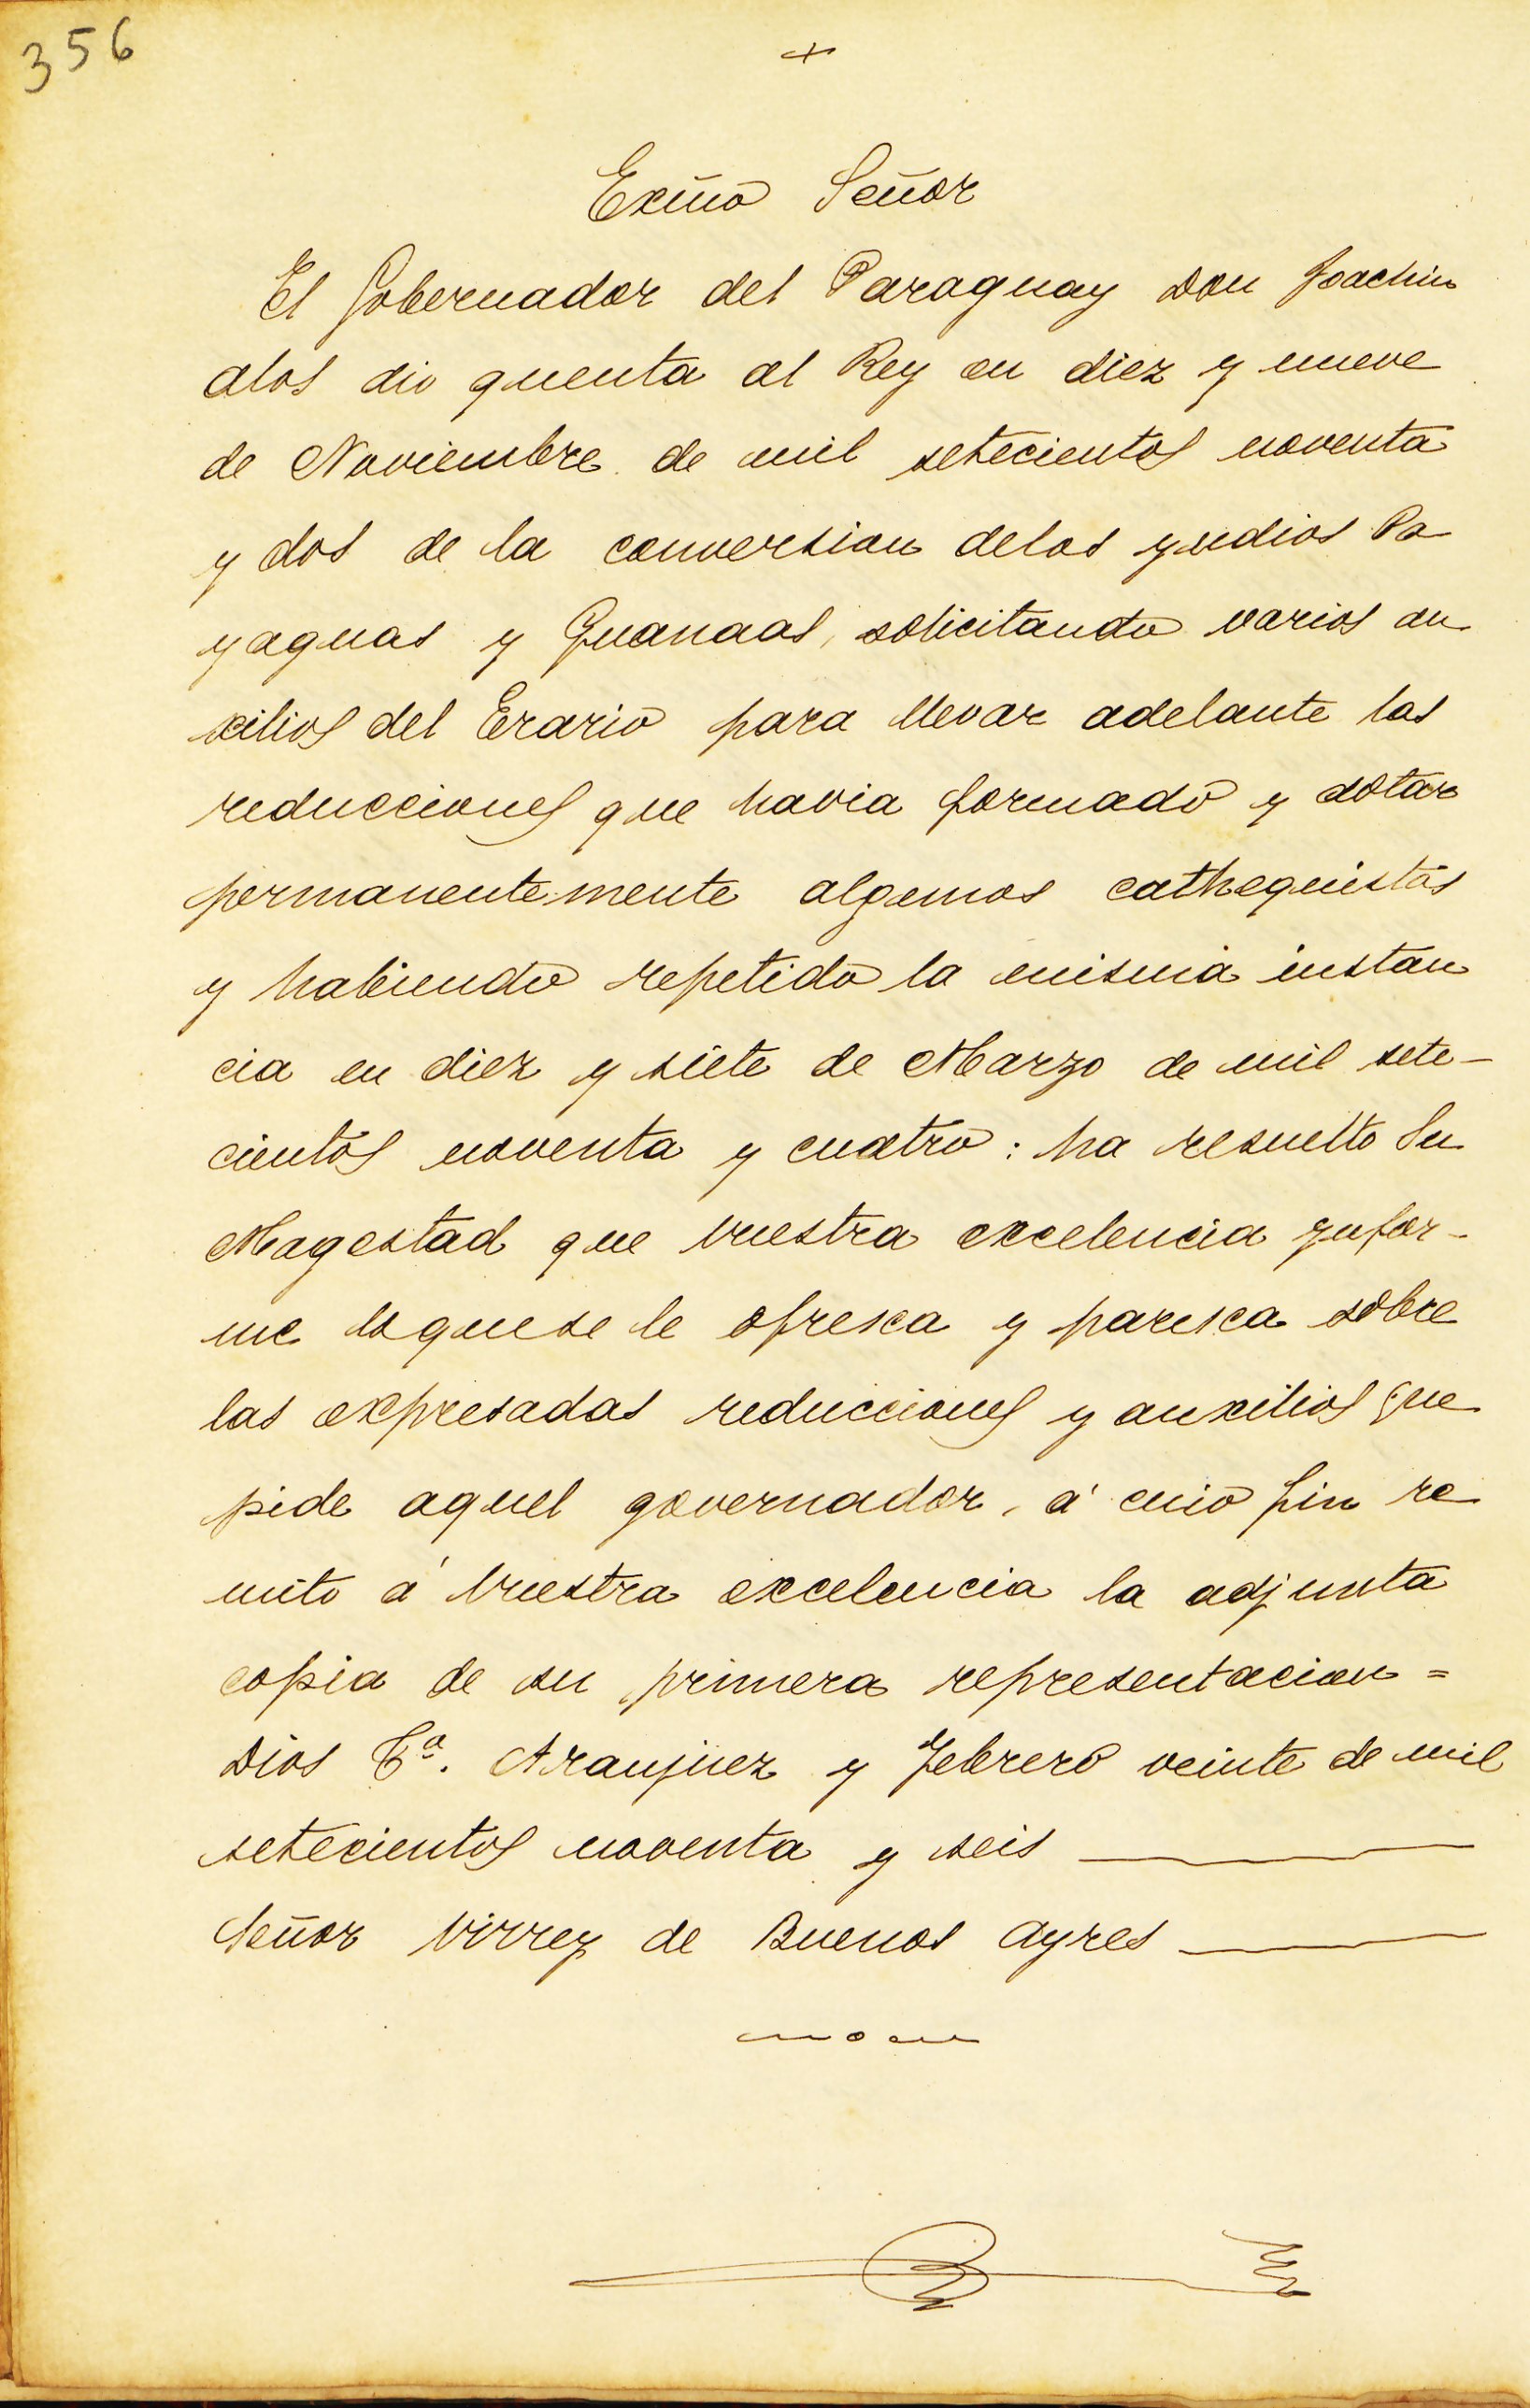 356
+
Exmo Señor
El Gobernador del Paraguay Don Joachin
alos dio quenta al Rey en diez y nueve
de Noviembre de mil setecientos noventa
y dos de la conversion delos yndios Pa
yaguas y Guanaas, solicitando varios au
xilios del Erario para llevar adelante las
reducciones que havia formado y dotar
permanentemente algunos cathequistas
y habiendo repetido la misma instan
cia en diez y siete de Marzo de mil sete-
cientos noventa y cuatro: ha resuelto Su
Magestad que Vuestra excelencia ynfor-
me loquese le ofresca y paresca sobre
las expresadas reducciones y auxilios que
pide aquel governador, á cuio fin re
mito á Vuestra excelencia la adjunta
copia de su primera representacion =
Dios Gª. Aranjuez y Febrero veinte de mil
setecientos noventa y seis
Señor Virrey de Buenos Ayres